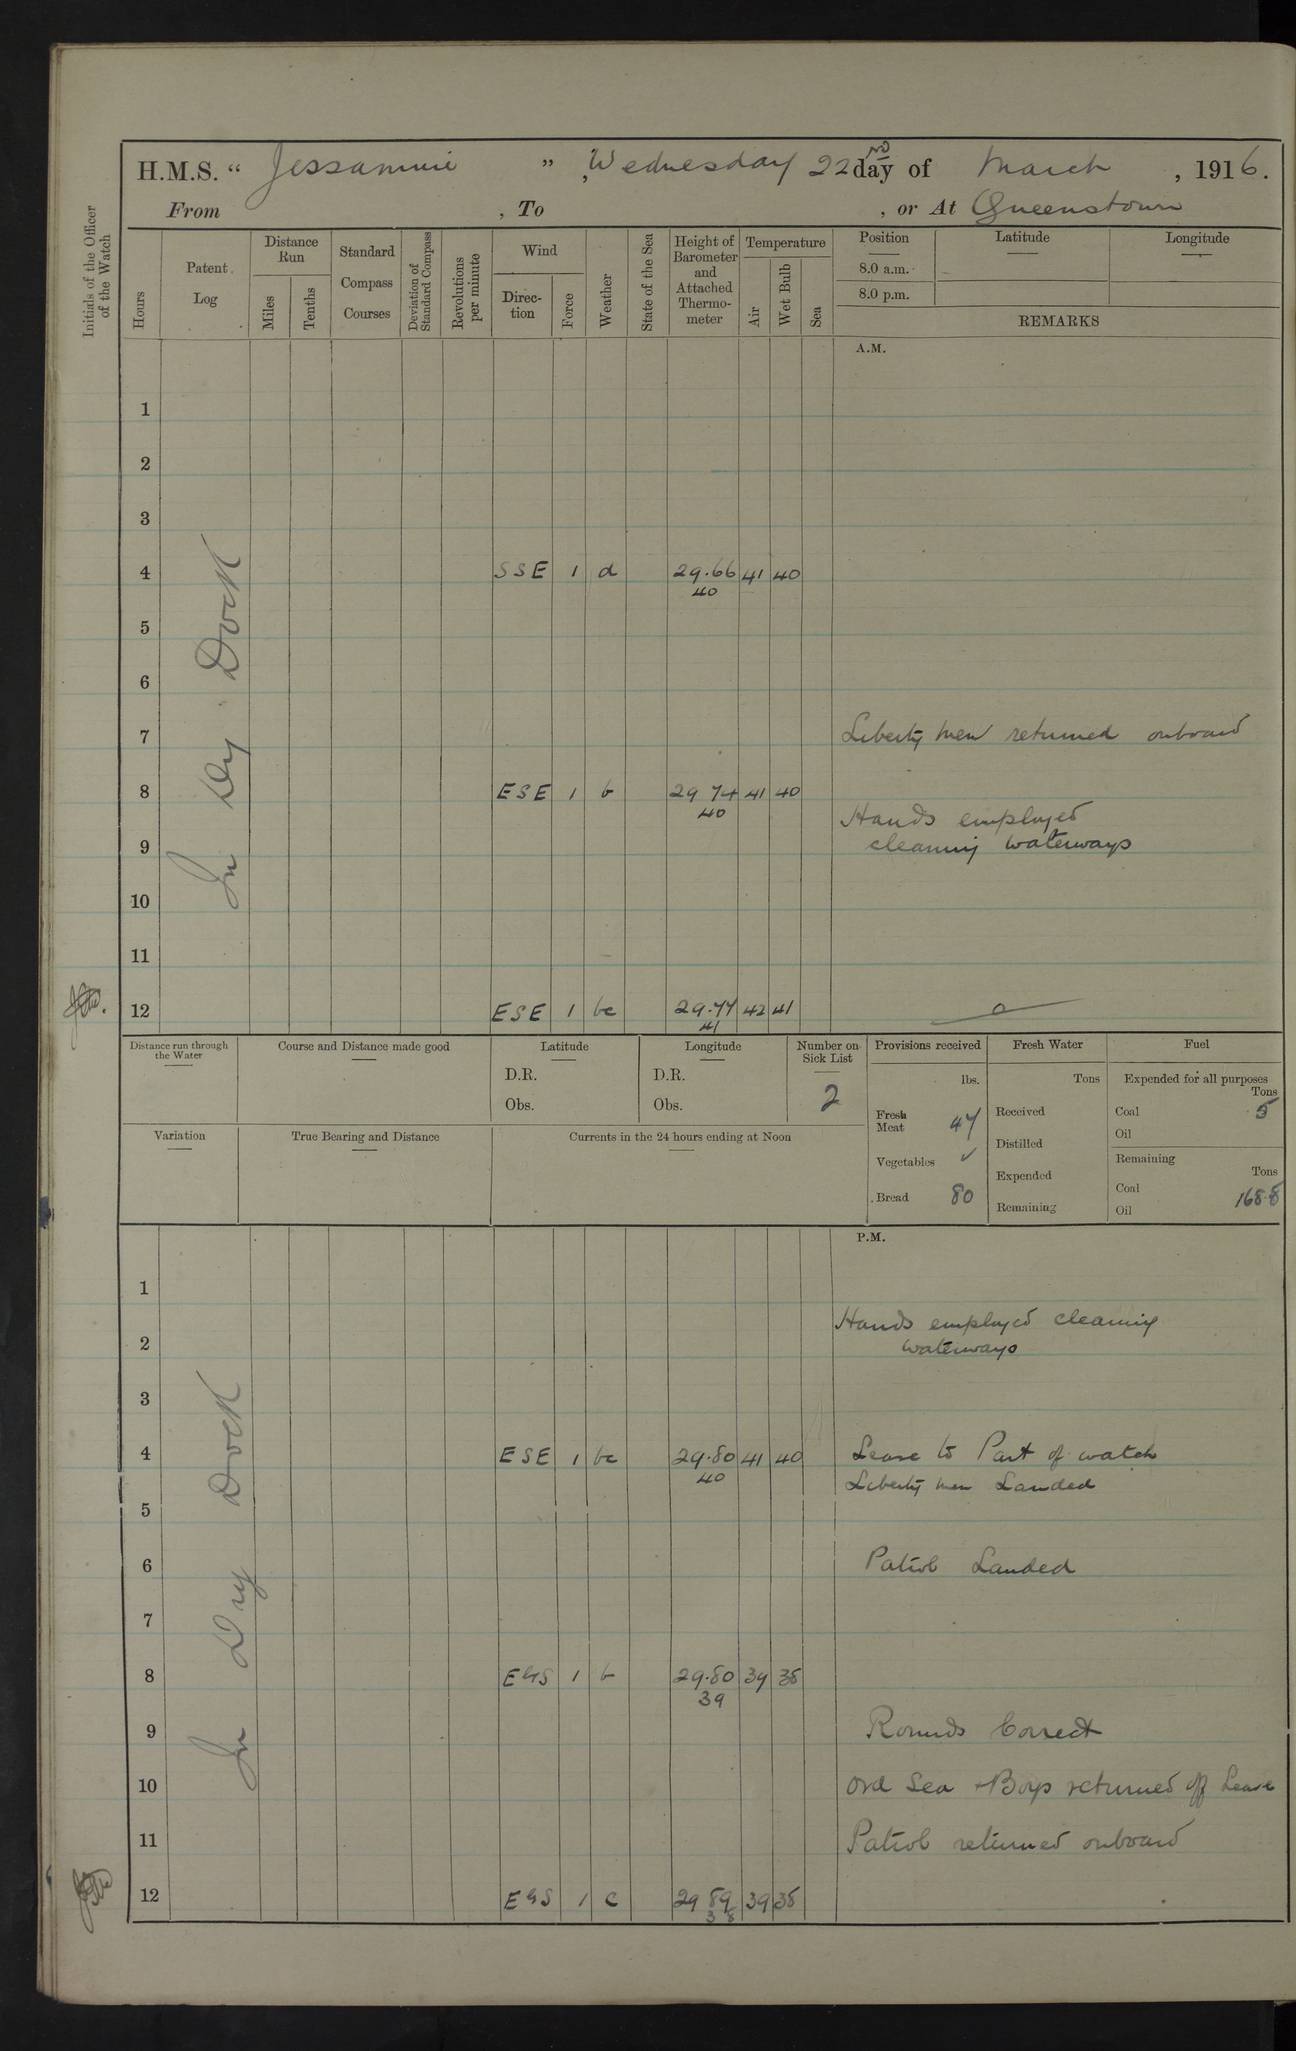 H.M.S. “ Jessamine ” , Wednesday 22nd day of March , 1916.
From , To , or At Queenstown
Initials of the Officer of the Watch
Hours
Patent Log
Distance Run
Miles
Tenths
Standard Compass Courses
Deviation of Standard Compass
Revolutions per minute
Wind
Direc-tion
Force
Weather
State of the Sea
Height of Barometer and Attached Thermo-meter
Temperature
Air
Wet Bulb
Sea
Position
Latitude
Longitude
8.0 a.m.
8.0 p.m.
REMARKS
A.M.
In Dry Dock
1
2
3
4 SSE 1 d 29.66 41 40
40
5
6
7 Liberty men returned onboard
8 ESE 1 b 29 74 41 40
40
Hands employed
9 cleaning waterways
10
11
12 ESE 1 bc 29.77 42 41
41
Distance run through the Water
Course and Distance made good
Latitude
D.R.
Obs.
Longitude
D.R.
Obs.
Number on Sick List
2
Variation
True Bearing and Distance
Currents in the 24 hours ending at Noon
Provisions received
lbs.
Fresh Meat 47
Vegetables ✓
Bread 80
Fresh Water
Tons
Received
Distilled
Expended
Remaining
Fuel
Expended for all purposes
Tons
Coal 5
Oil
Remaining
Tons
Coal 168.8
Oil
P.M.
In Dry Dock
1
Hands employed cleaning
2 waterways
3
4 ESE 1 bc 29.80 41 40 Leave to Part of watch
40 Liberty men Landed
5
6 Patrol Landed
7
8 E4S 1 b 29.80 39 38
39
9 Rounds Correct
10 Ord Sea & Boys returned off Leave
11 Patrol returned onboard
12 E4S 1 c 29 89 39 38
38